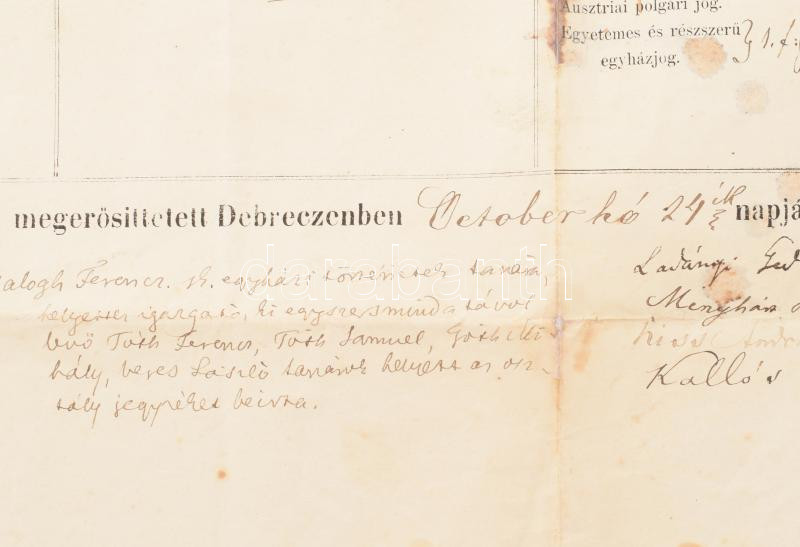 Ausztriai polgári jog.
Egyetemes és részszerű
egyházjog.
megerősittetett Debreczenben October hó 24 ik napjá
alogh Ferencz. s. k. egyházi történetek tanára,
helyettes igazgató, ki egyszersmind a távol
levő Tóth Ferencz, Tóth Samuel, Góth Mi-
hály, veres László tanárok helyett az osz-
tály jegyzéket beirta.
Ladányi Ged
Menyhárt
Kiss
Kallós
darabanth